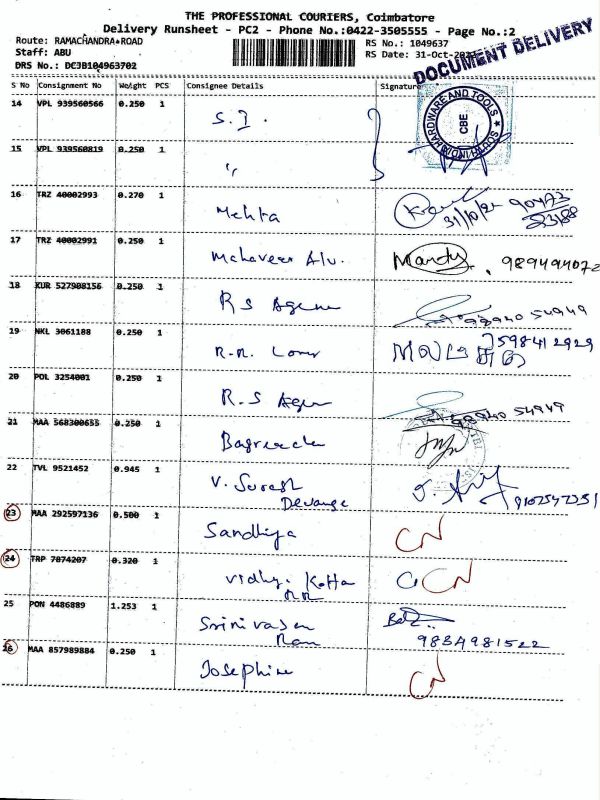 THE PROFESSIONAL COURIERS, Coimbatore
Delivery Runsheet - PC2 - Phone No.:0422-3505555 - Page No.:2
Route: RAMACHANDRA ROAD
Staff: ABU
DRS No.: DCJB104963702
RS No.: 1049637
RS Date: 31-Oct-
DOCUMENT DELIVERY
S No Consignment No Weight PCS Consignee Details Signature
SOUTH INDIA HARDWARE AND TOOLS
CBE
14 VPL 939560566 0.250 1 S.I.
15 VPL 939560819 0.250 1 "
16 TRZ 40002993 0.270 1 Mehta
31/10/21 90473
17 TRZ 40002991 0.250 1 Mahaveer Alu. 9894944072
18 KUR 527908156 0.250 1 R S Agen
98940 54949
19 NKL 3061188 0.250 1 R.R.
598412929
20 POL 3254001 0.250 1 R.S Agen
98940 54949
21 MAA 568300655 0.250 1
22 TVL 9521452 0.945 1 V. Suresh
Devange 9102542251
23 MAA 292597136 0.500 1 Sandhiya CN
24 TRP 7074207 0.320 1 Vidhy. Kotta CN
25 PON 4486889 1.253 1 Srinivasan
Ram 9884981522
26 MAA 857989884 0.250 1 Josephine CN